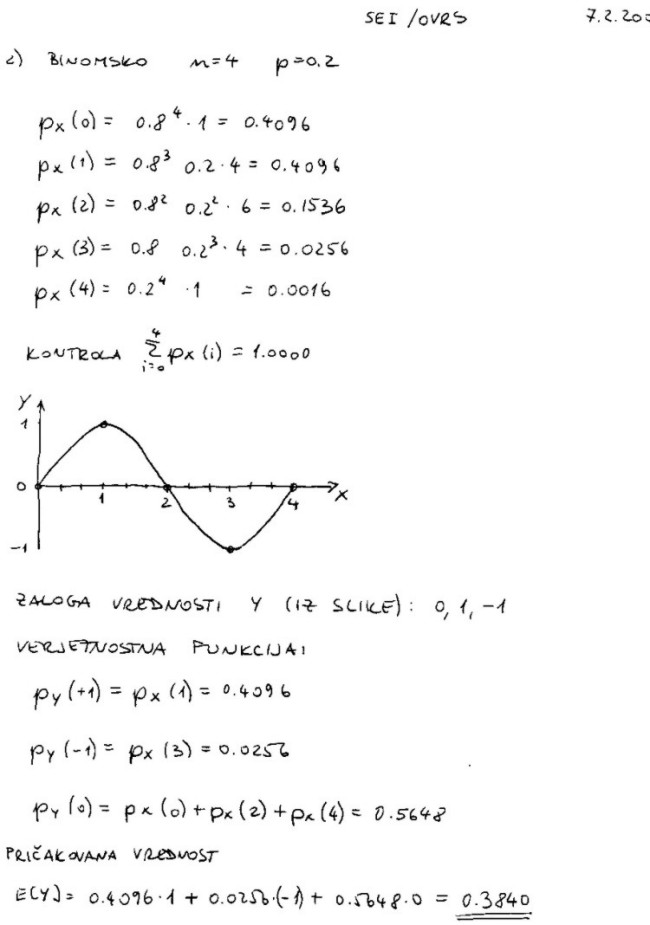 SEI /OVRS 7.2.200
2) BINOMSKO n=4 p=0.2
px (0) = 0.8⁴ · 1 = 0.4096
px (1) = 0.8³ 0.2 · 4 = 0.4096
px (2) = 0.8² 0.2² · 6 = 0.1536
px (3) = 0.8 0.2³ · 4 = 0.0256
px (4) = 0.2⁴ · 1 = 0.0016
KONTROLA ∑_{i=0}^{4} px (i) = 1.0000
Y
1
0
1 2 3 4 X
-1
ZALOGA VREDNOSTI Y (IZ SLIKE): 0, 1, -1
VERJETNOSTNA FUNKCIJA:
pY (+1) = px (1) = 0.4096
pY (-1) = px (3) = 0.0256
pY (0) = px (0) + px (2) + px (4) = 0.5648
PRIČAKOVANA VREDNOST
E(Y) = 0.4096·1 + 0.0256·(-1) + 0.5648·0 = 0.3840